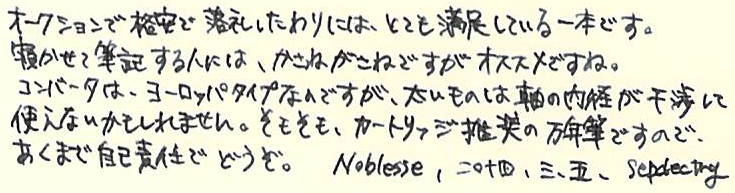 オークションで格安で落札したわりには、とても満足している一本です。
寝かせて筆記する人には、かさねがさねですがオススメですね。
コンバータは、ヨーロッパタイプなのですが、太いものは軸の内径が干渉して
使えないかもしれません。そもそも、カートリッジ推奨の万年筆ですので、
あくまで自己責任でどうぞ。 Noblesse, 二〇十四、三、五、